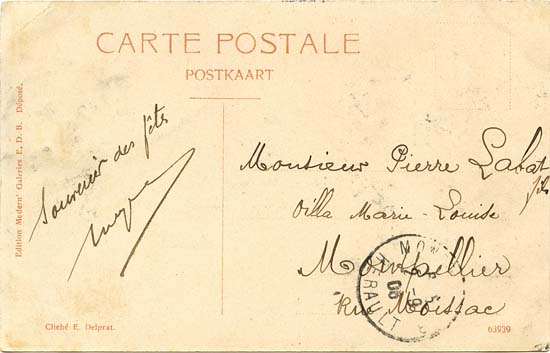 CARTE POSTALE
POSTKAART
Edition Modern' Galeries E. D. B. Déposé.
Souvenir des fêtes
Monsieur Pierre Labat
fils
Villa Marie-Louise
Montpellier
Rue Moissac
MON
HÉRAULT
08
Cliché E. Delprat.
63939